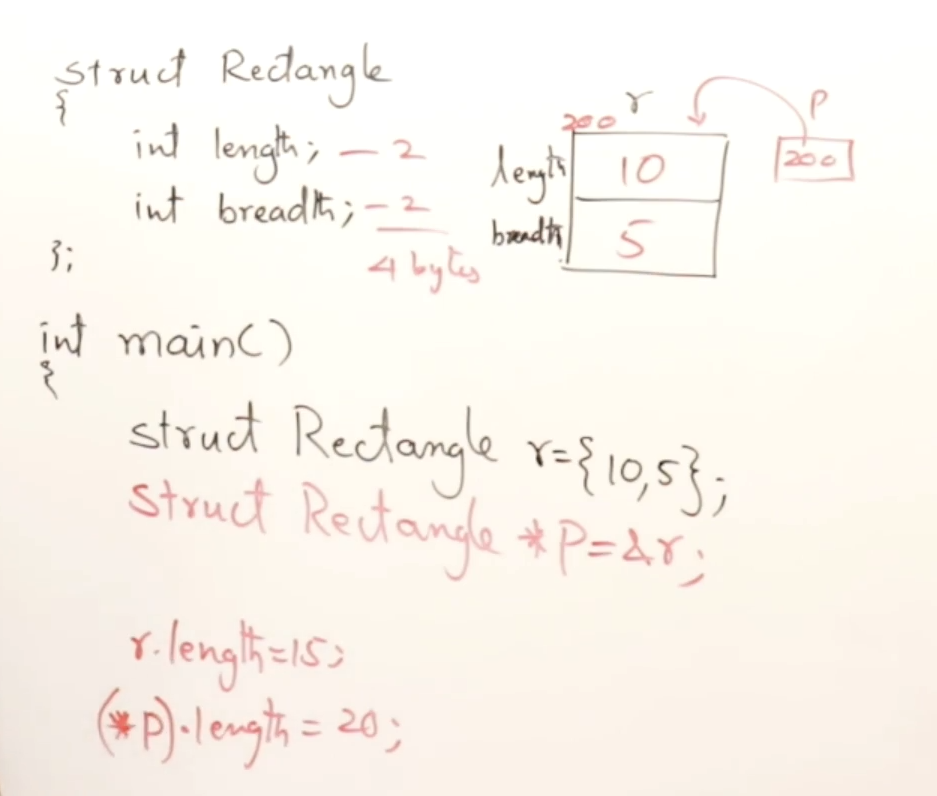 struct Rectangle
{
int length; — 2
int breadth; — 2
4 bytes
};
r
200
length 10
breadth 5
P
200
int main()
{
struct Rectangle r={10,5};
struct Rectangle *P=&r;
r.length=15;
(*P).length = 20;